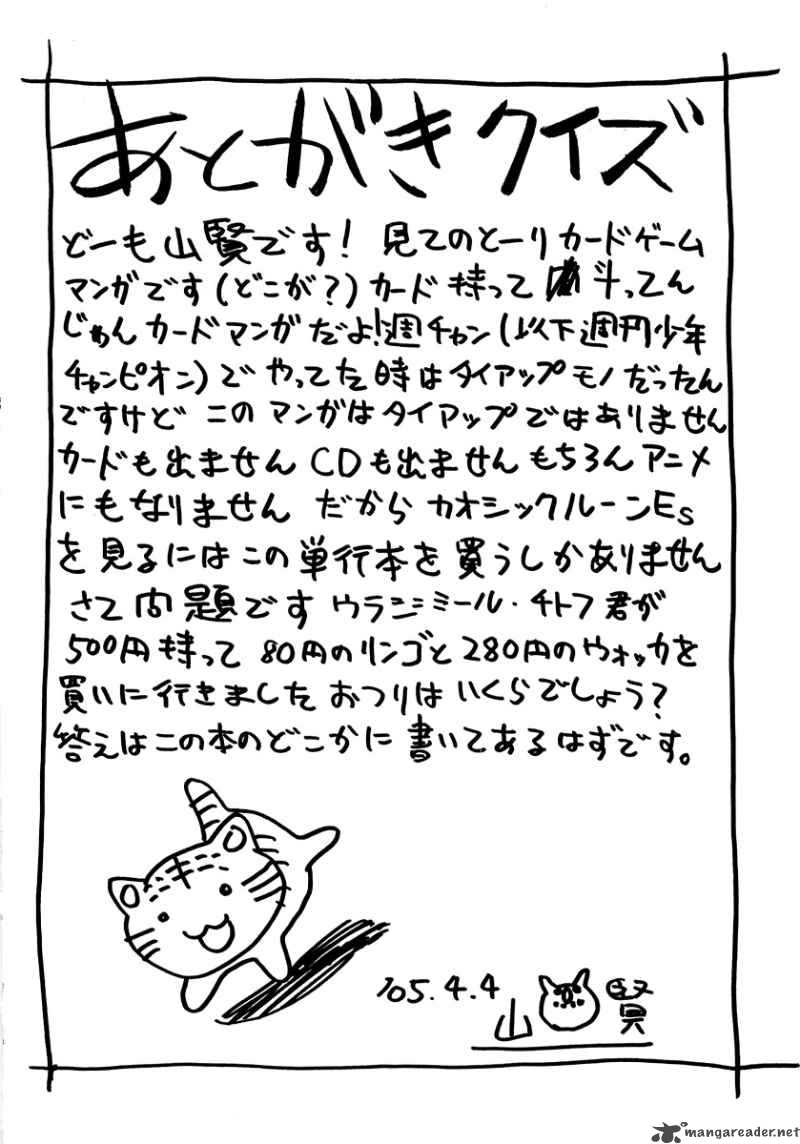 あとがきクイズ
どーも山賢です! 見てのとーりカードゲーム
マンガです(どこが?)カード持って斗ってん
じゃんカードマンガだよ!週チャン(以下週刊少年
チャンピオン)でやってた時はタイアップモノだったん
ですけどこのマンガはタイアップではありません
カードも出ませんCDも出ませんもちろんアニメ
にもなりません だからカオシックルーンEs
を見るにはこの単行本を買うしかありません
さて問題です ウラジミール・チトフ君が
500円持って80円のリンゴと280円のウォッカを
買いに行きました おつりはいくらでしょう?
答えはこの本のどこかに書いてあるはずです。
'05.4.4
山賢
mangareader.net